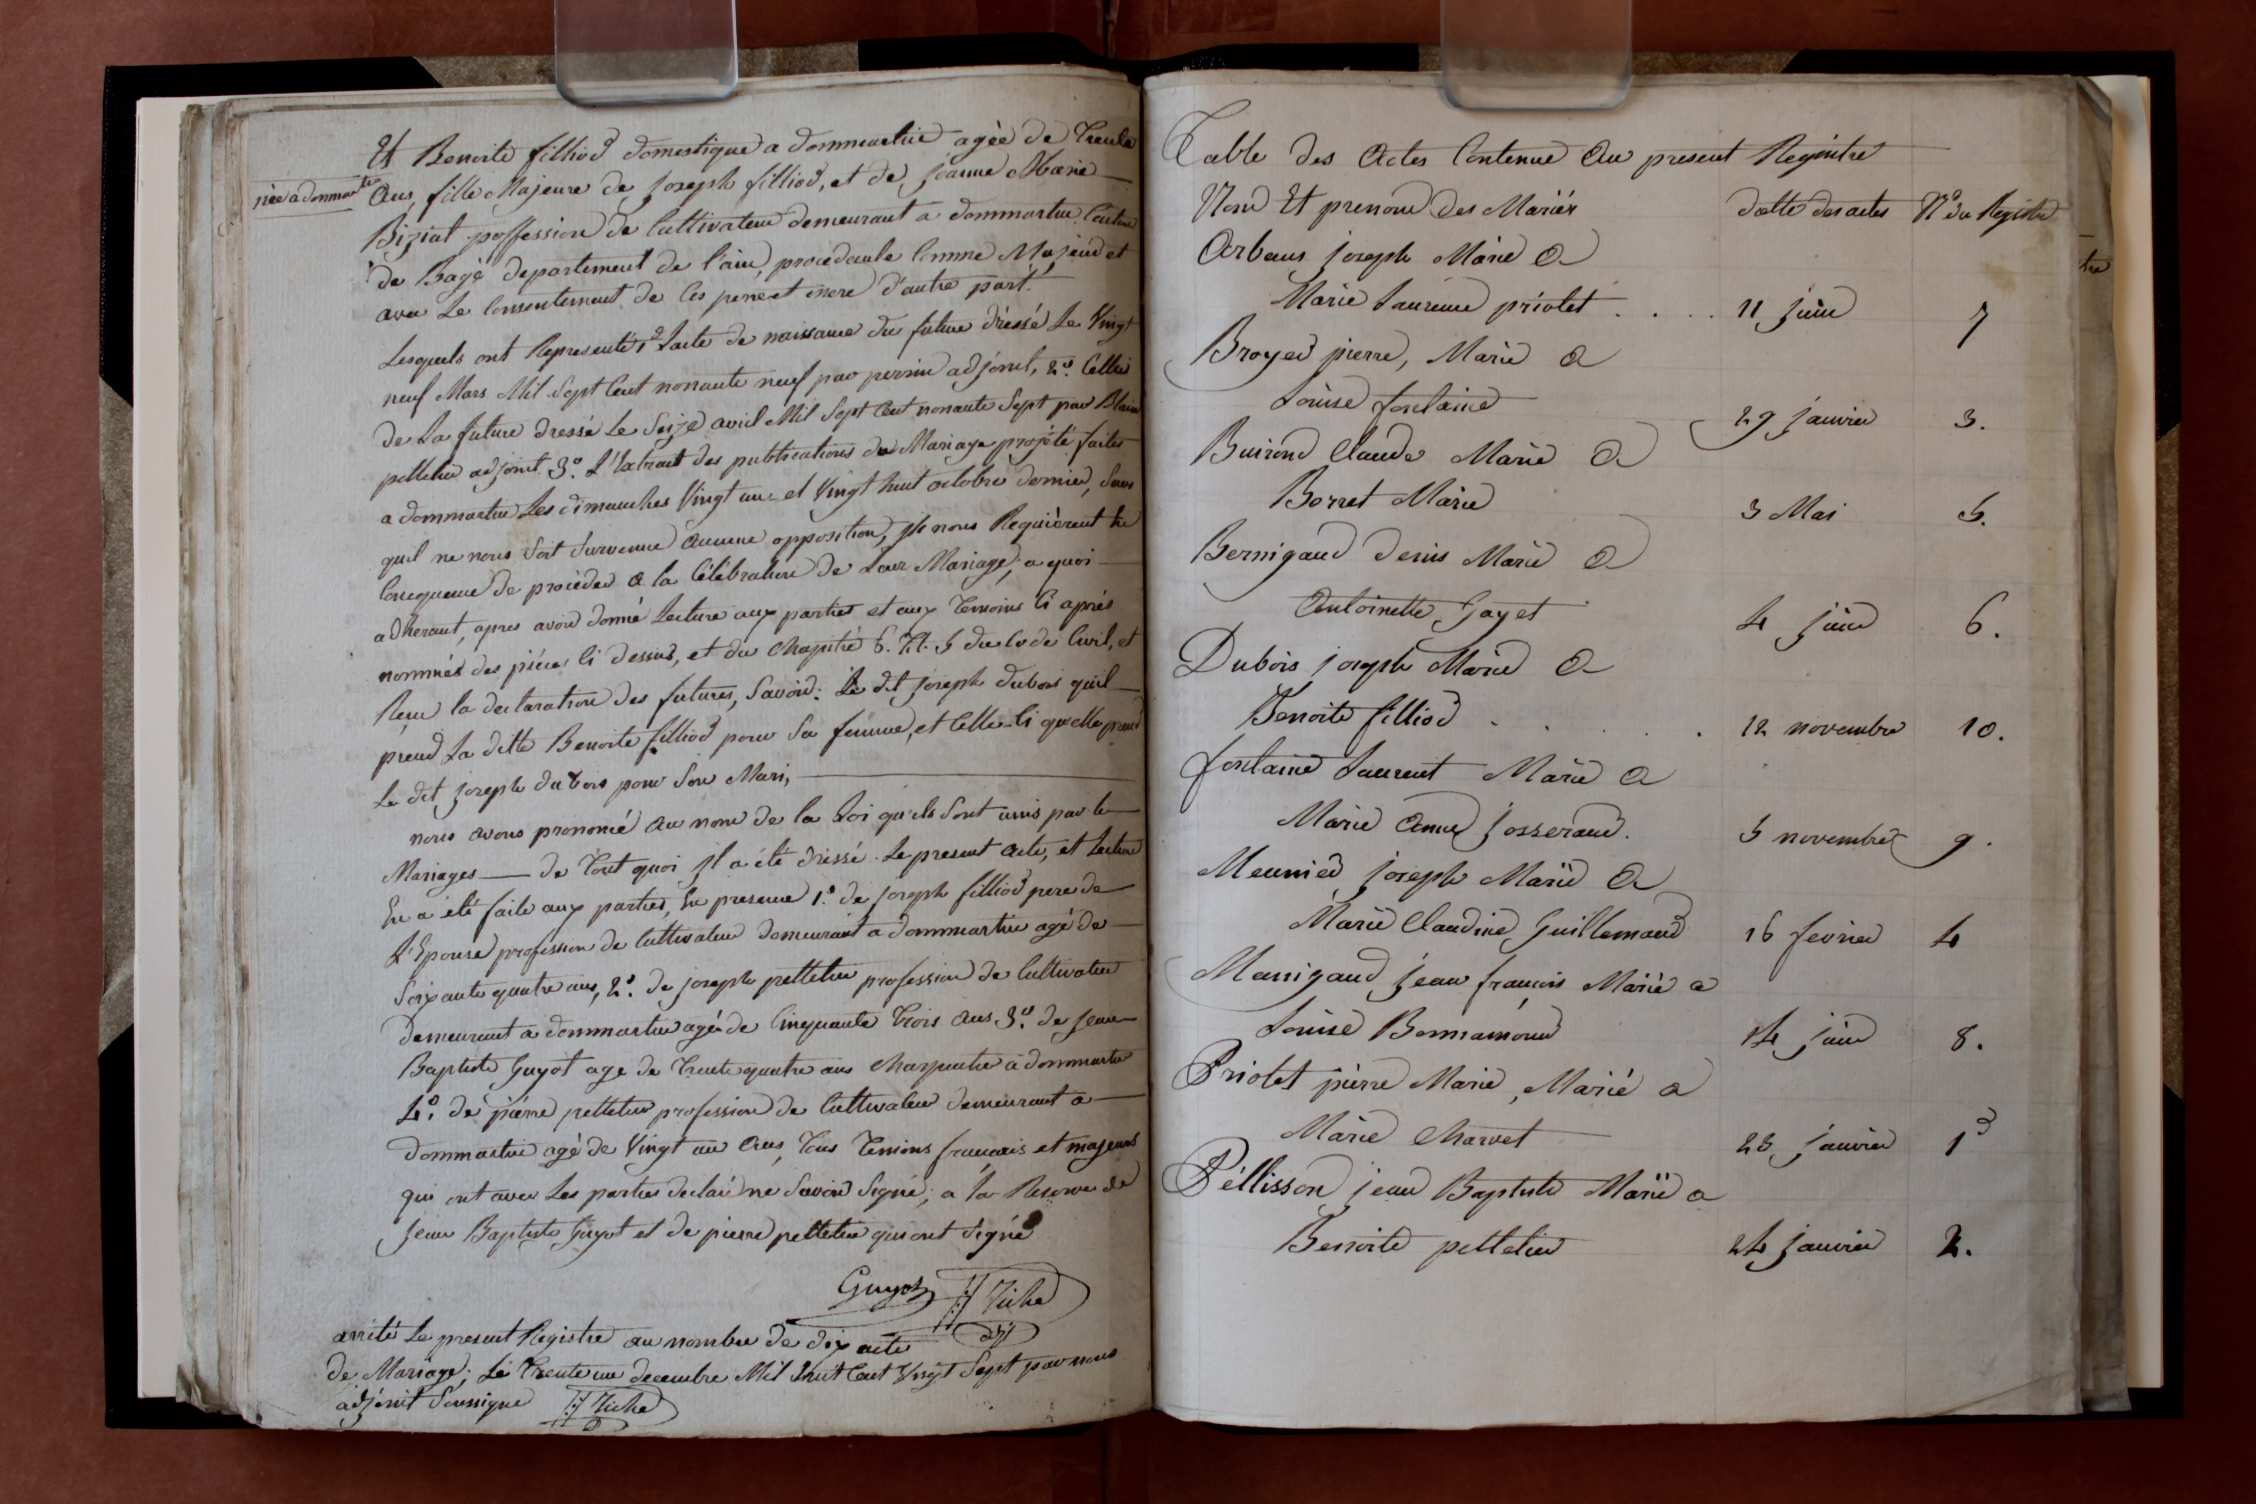 Et Benoite filliod domestique a dommartin agèe de Trente
née a dommartin
Ans, fille Majeure de Joseph filliod, et de Jeanne Marie
Biziat proffession de Cultivateur demeurant a dommartin Canton
de Bagé departement de l'ain, procedante Comme Majeur et
avec Le Consentement de Ces pere et mere d'autre part.
Lesquels ont Representé 1º L'acte de naissance du future dréssé Le Vingt
neuf Mars Mil Sept Cent nonante neuf par perrin adjoint, 2º. Cellui
de La future dressé Le Seize avril Mil Sept Cent nonante Sept par Blain
pelletier adjoint. 3º. L'Extrait des publications du Mariage projété faites
a dommartin Les dimanches Vingt une et Vingt huit octobre dernier, Sans
quil ne nous Soit Survenue Aucune opposition, ils nous Requièrent En
Consequence de procéder a la Célébration de Leur Mariage, a quoi
adherant, apres avoir donné Lecture aux parties et aux Temoins Ci après
nommés des pièces Ci dessus, et du Chapitre 6. Tit. 5 du Code Civil, et
Reçu la declaration des futures, Savoir: Le dit Joseph dubois quil
prend La ditte Benoite filliod pour Sa femme, et Celle-Ci quelle prend
Le dit Joseph dubois pour Son Mari,
nous avons prononcé Au nom de la Loi quils Sont unis par le
Mariages de Tout quoi Il a été dressé Le present acte, et Lecture
En a été faite aux parties, En presence 1º. de Joseph filliod pere de
L'Epouse profession de Cultivateur demeurant a dommartin agé de
Soixante quatre ans, 2º. de Joseph pelletier profession de Cultivateur
Demeurant a dommartin agé de Cinquante Trois Ans 3º. de Jean
Baptiste Guyot agé de Trente quatre ans Charpentier a dommartin
4º. de pierre pelletier profession de Cultivateur demeurant a
dommartin agé de Vingt un Ans, Tous Temoins français et majeurs
qui ont avec Les parties declaré ne Savoir Signé, a la Reserve de
Jean Baptiste Guyot et de pierre pelletier qui ont Signé
Guyot
arrêté Le present Registre au nombre de dix acte
de Mariage, Le Trente un decembre Mil huit Cent Vingt Sept par nous
adjoint Soussigné
Table des Actes Contenue Au present Registre
Nom Et prenom des Mariés datte des actes Nº du Registre
Arbans Joseph Marié A
Marie Laurence priolet . . . . 11 Juin 7
Broyer pierre, Marié A
Louise fontaine 29 janvier 3.
Buirond Claude Marié A
Borret Marie 3 Mai 5.
Bernigaud denis Marié A
Antoinette Gayet 4 Juin 6.
Dubois Joseph Marié A
Benoite filliod . . . . . 12 novembre 10.
fontaine Laurent Marié A
Marie Anne Josserand. 5 novembre 9.
Meunier Joseph Marié A
Marie Claudine Guillemaud 16 fevrier 4
Manigaud Jean françois Marié a
Louise Bonnamour 14 Juin 8.
Priolet pièrre Marie, Marié a
Marie Charvet 23 Janvier 1
Péllisson Jean Baptiste Marié a
Benoite pelletier 24 Janvier 2.